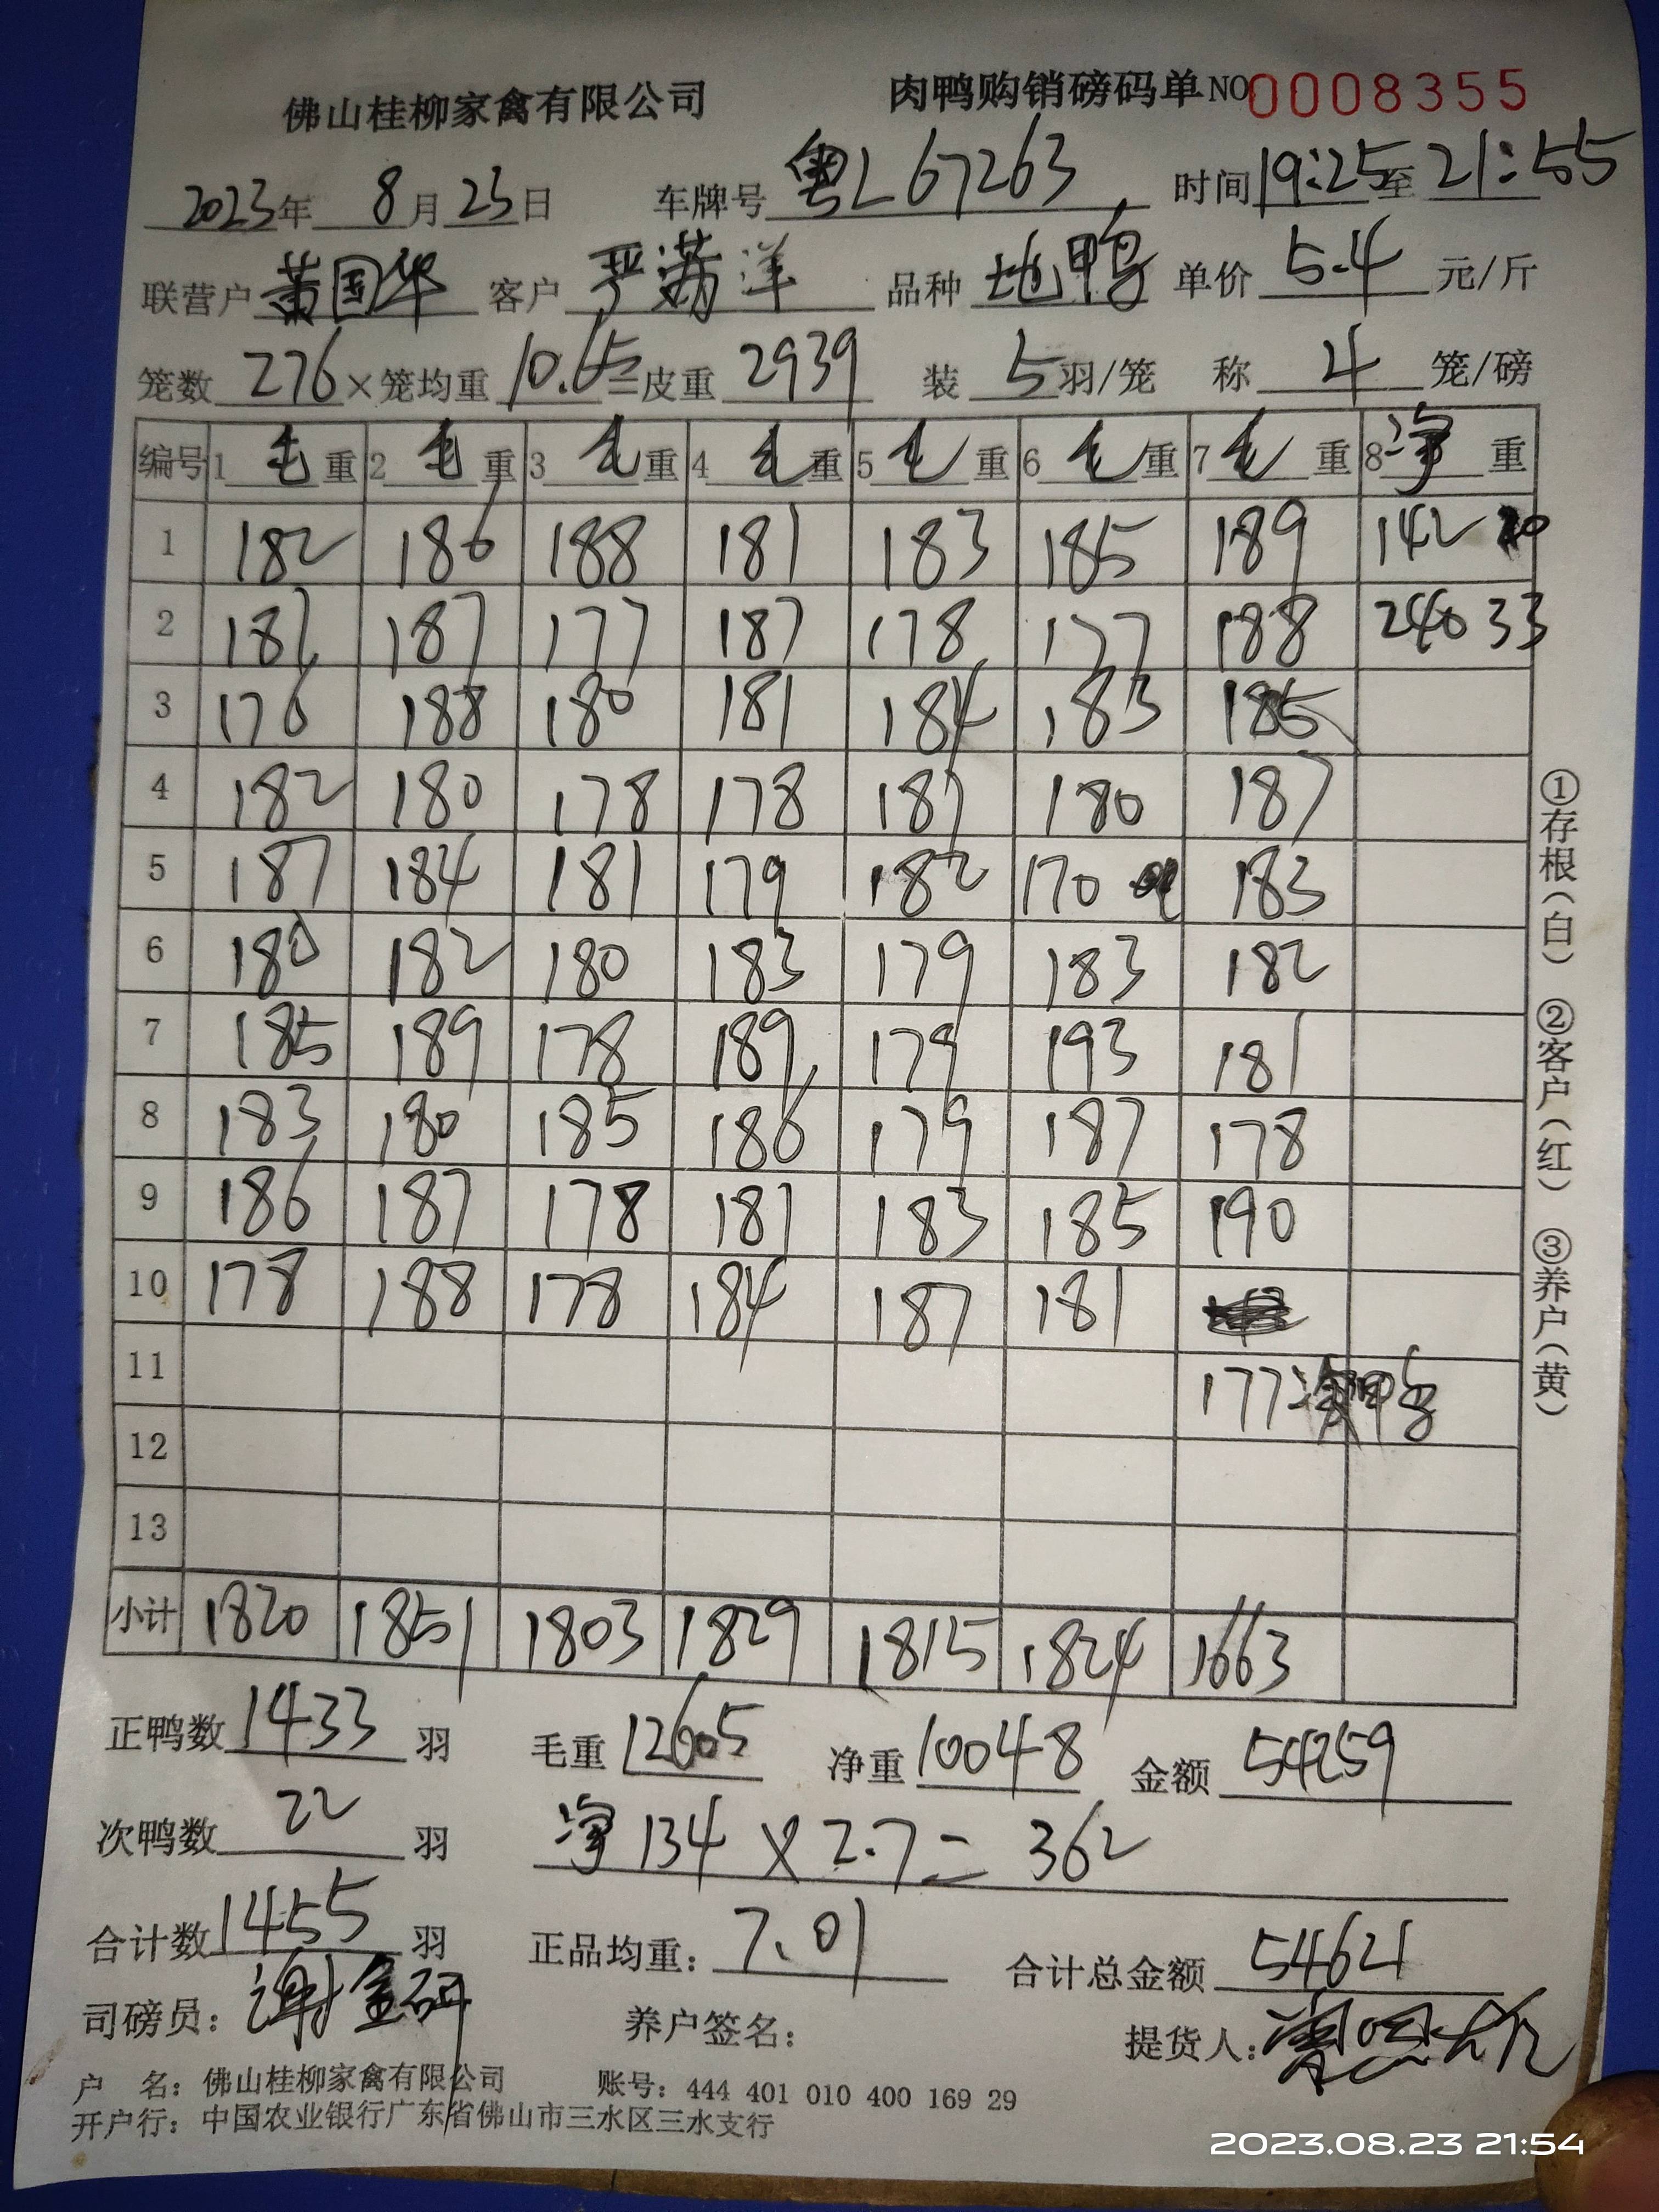 佛山桂柳家禽有限公司 肉鸭购销磅码单 NO 0008355
2023年 8月 23日 车牌号 粤L67263 时间 19:25至 21:55
联营户 黄国华 客户 严满洋 品种 地鸭 单价 5.4 元/斤
笼数 276 ×笼均重 10.65 =皮重 2939 装 5 羽/笼 称 4 笼/磅
编号 1 毛 重 2 毛 重 3 毛 重 4 毛 重 5 毛 重 6 毛 重 7 毛 重 8 净 重
1 182 186 188 181 183 185 189 142 20
2 181 187 177 187 178 177 188 240 33
3 176 188 180 181 184 183 185
4 182 180 178 178 181 180 187
5 187 184 181 179 182 170 183
6 180 182 180 183 179 183 182
7 185 189 178 189 179 193 181
8 183 180 185 186 179 187 178
9 186 187 178 181 183 185 190
10 178 188 178 184 187 181
11 177 鸭
12
13
小计 1820 1851 1803 1829 1815 1824 1663
正鸭数 1433 羽 毛重 12605 净重 10048 金额 54259
次鸭数 22 羽 净 134 × 2.7 = 362
合计数 1455 羽 正品均重: 7.01 合计总金额 54621
司磅员: 谢金研 养户签名: 提货人:
户 名: 佛山桂柳家禽有限公司 账号: 444 401 010 400 169 29
开户行: 中国农业银行广东省佛山市三水区三水支行
①存根(白) ②客户(红) ③养户(黄)
2023.08.23 21:54